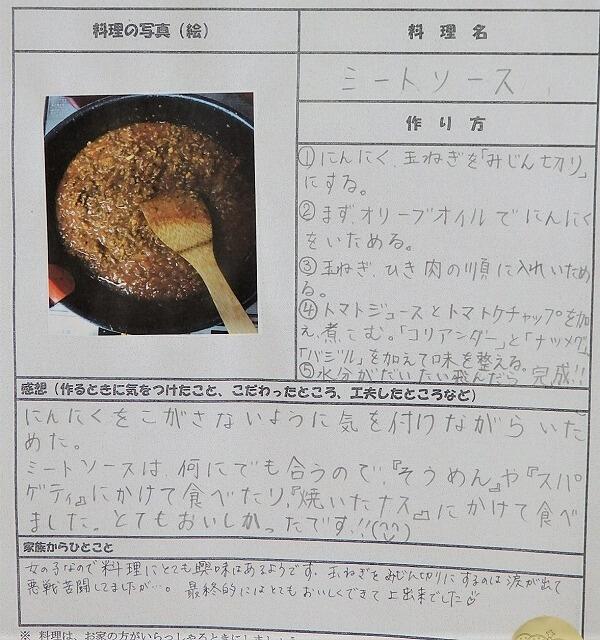 料理の写真（絵）
料 理 名
ミートソース
作 り 方
①にんにく、玉ねぎを「みじん切り」
にする。
②まず、オリーブオイルでにんにく
をいためる。
③玉ねぎ、ひき肉の順に入れいため
る。
④トマトジュースとトマトケチャップを加
え、煮こむ。「コリアンダー」と「ナツメグ」
「バジル」を加えて味を整える。
⑤水分がだいたい飛んだら 完成!!
感想（作るときに気をつけたこと、こだわったところ、工夫したところなど）
にんにくをこがさないように気を付けながらいた
めた。
ミートソースは、何にでも合うので、『そうめん』や『スパ
ゲティ』にかけて食べたり、『焼いたナス』にかけて食べ
ました。とてもおいしかったです!!
家族からひとこと
女の子なので料理にとても興味はあるようです。玉ねぎをみじん切りにするのは涙が出て
悪戦苦闘してましたが…。最終的にはとてもおいしくできて上出来でした♡
※ 料理は、お家の方がいらっしゃるときにしましょう